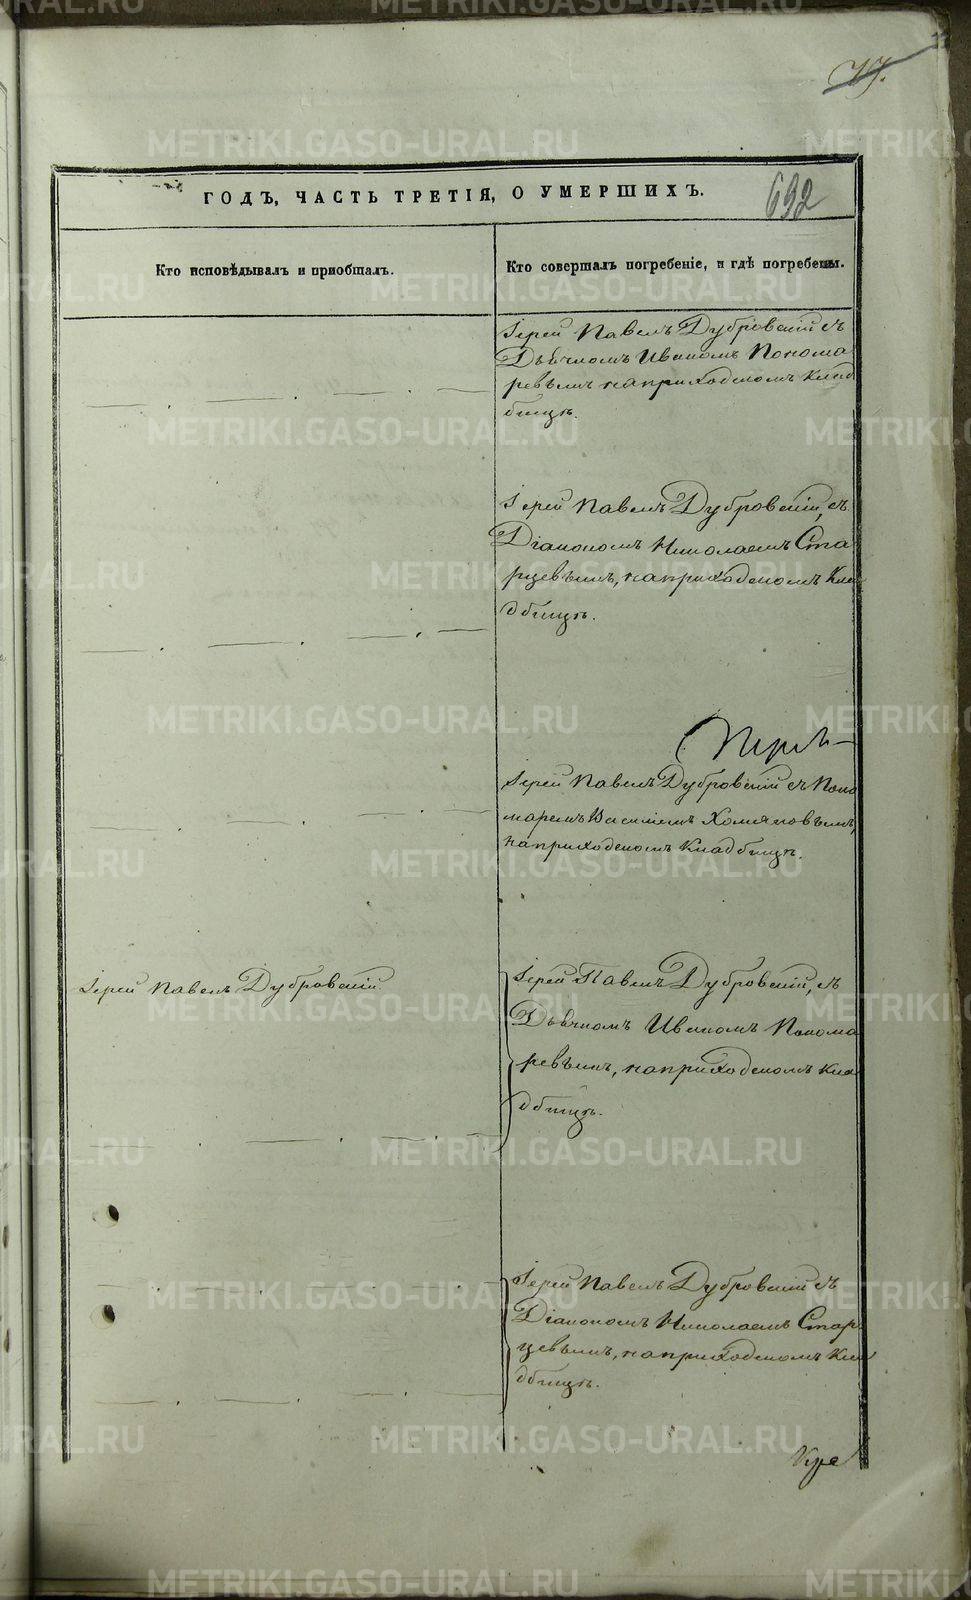 77.
ГОДЪ, ЧАСТЬ ТРЕТІЯ, О УМЕРШИХЪ.
692
Кто исповѣдывалъ и пріобщалъ.
Кто совершалъ погребеніе, и гдѣ погребены.
Іерей Павелъ Дубровскій съ
Дьячкомъ Иваномъ Понома
ревымъ на приходскомъ клад
бищѣ.
Іерей Павелъ Дубровскій, съ
Діакономъ Николаемъ Ста
рцевымъ, на приходскомъ кла
дбищѣ.
Іерей Павелъ Дубровскій съ Поно
маремъ Василіемъ Хомяковымъ,
на приходскомъ кладбищѣ.
Іерей Павелъ Дубровскій.
Іерей Павелъ Дубровскій, съ
Дьячкомъ Иваномъ Понома
ревымъ, на приходскомъ кла
дбищѣ.
Іерей Павелъ Дубровскій съ
Діакономъ Николаемъ Стар
цевымъ, на приходскомъ кла
дбищѣ.
METRIKI.GASO-URAL.RU